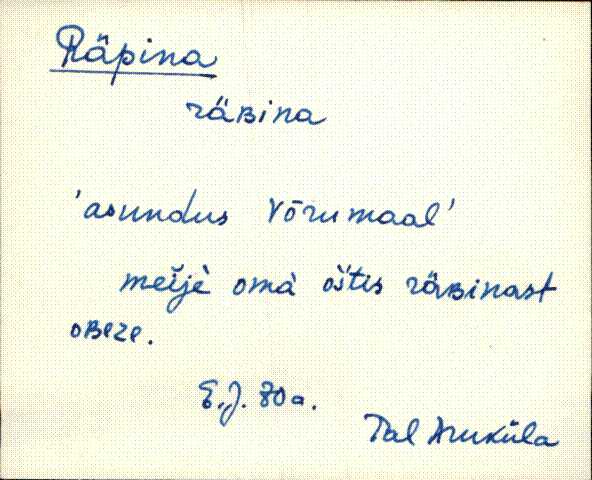 Räpina
räʙina
'asundus Võrumaal'
meìjè omà òśtis räʙinast
oʙeze.
E.J. 80a.
Tal Aruküla